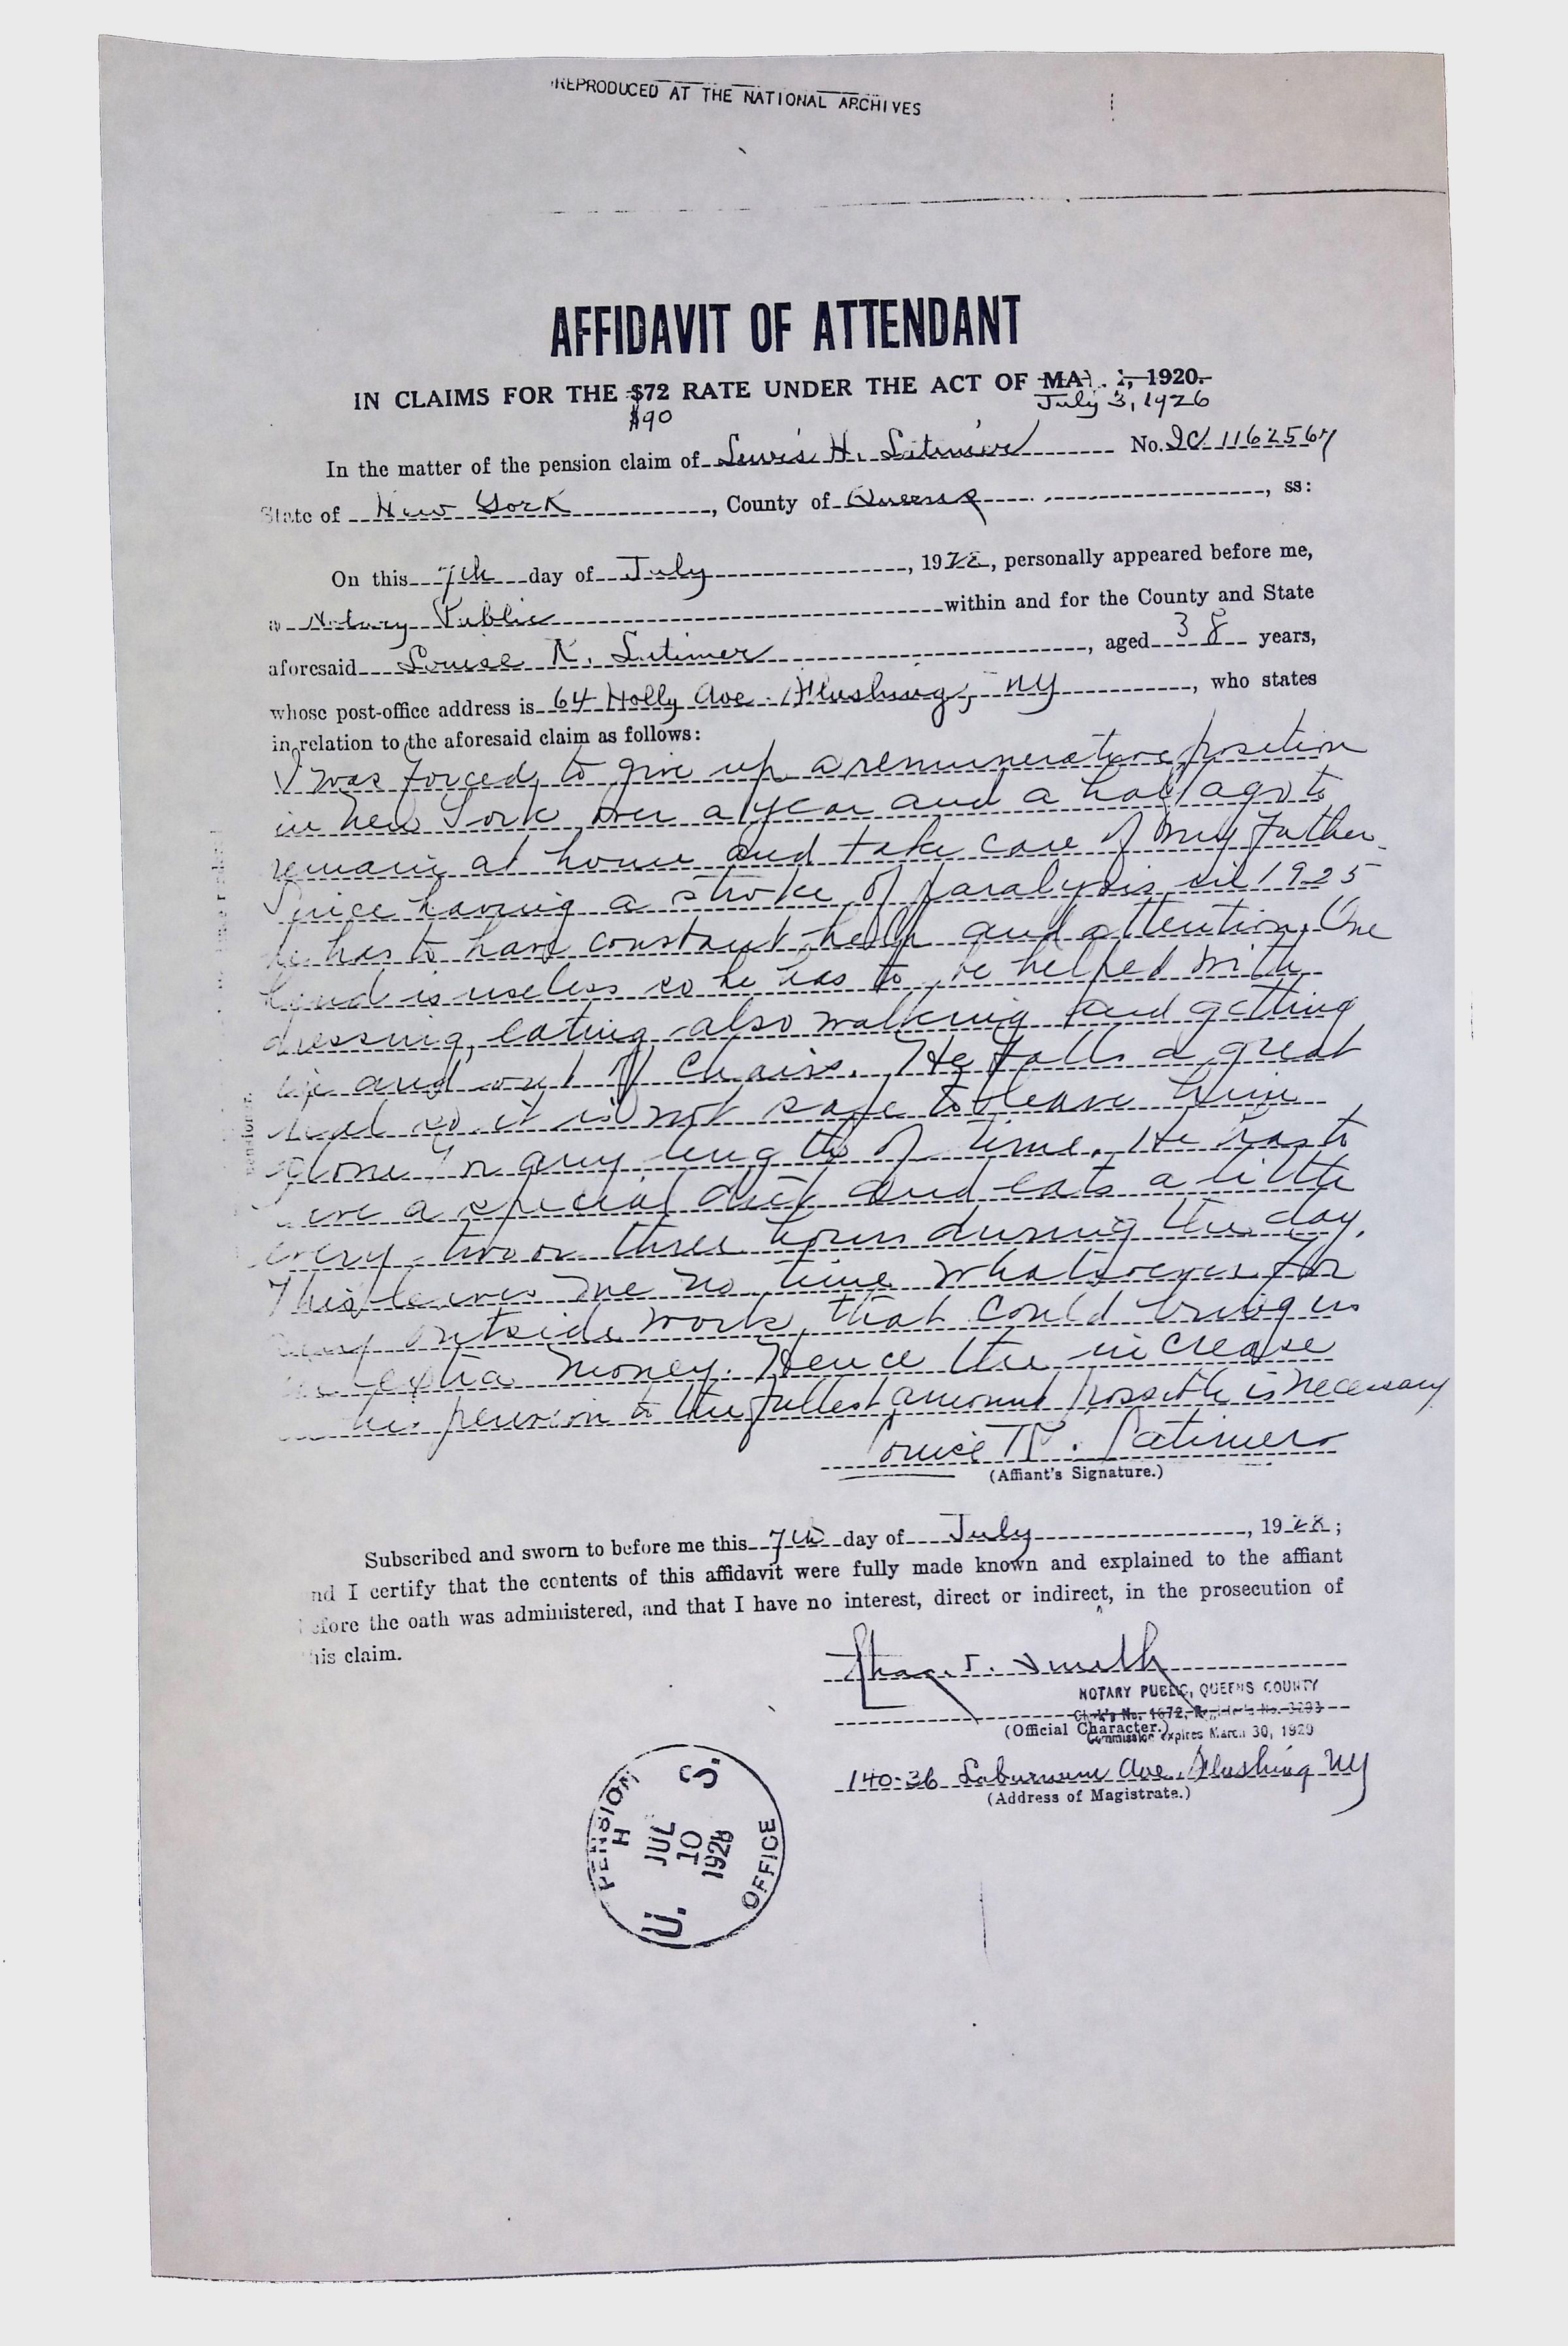 REPRODUCED AT THE NATIONAL ARCHIVES
AFFIDAVIT OF ATTENDANT
IN CLAIMS FOR THE $72 RATE UNDER THE ACT OF MAY 1, 1920.
$90 July 3, 1926
In the matter of the pension claim of Lewis H. Latimer No. IC 1162567
State of New York, County of Queens, ss:
On this 7th day of July, 1928, personally appeared before me,
a Notary Public within and for the County and State
aforesaid Louise R. Latimer, aged 38 years,
whose post-office address is 64 Holly Ave. Flushing, NY, who states
in relation to the aforesaid claim as follows:
I was forced to give up a remunerative position
in New York over a year and a half ago to
remain at home and take care of my father.
Since having a stroke of paralysis in 1925
he has to have constant help and attention. One
hand is useless so he has to be helped with
dressing, eating also walking and getting
in and out of chairs. He falls a great
deal so it is not safe to leave him
alone for any length of time. He has to
have a special diet and eats a little
every two or three hours during the day.
This leaves me no time whatsoever for
any outside work that could bring us
in extra money. Hence the increase
his pension to the fullest amount possible is necessary
Louise R. Latimer
(Affiant's Signature.)
Subscribed and sworn to before me this 7th day of July, 1928;
and I certify that the contents of this affidavit were fully made known and explained to the affiant
before the oath was administered, and that I have no interest, direct or indirect, in the prosecution of
this claim.
Smith
NOTARY PUBLIC, QUEENS COUNTY
Clerk's No. 1672, Register's No. 3293
(Official Character.)
Commission expires March 30, 1929
140-36 Laburnum Ave. Flushing NY
(Address of Magistrate.)
U. S. PENSION OFFICE
H
JUL
10
1928
pensioner.